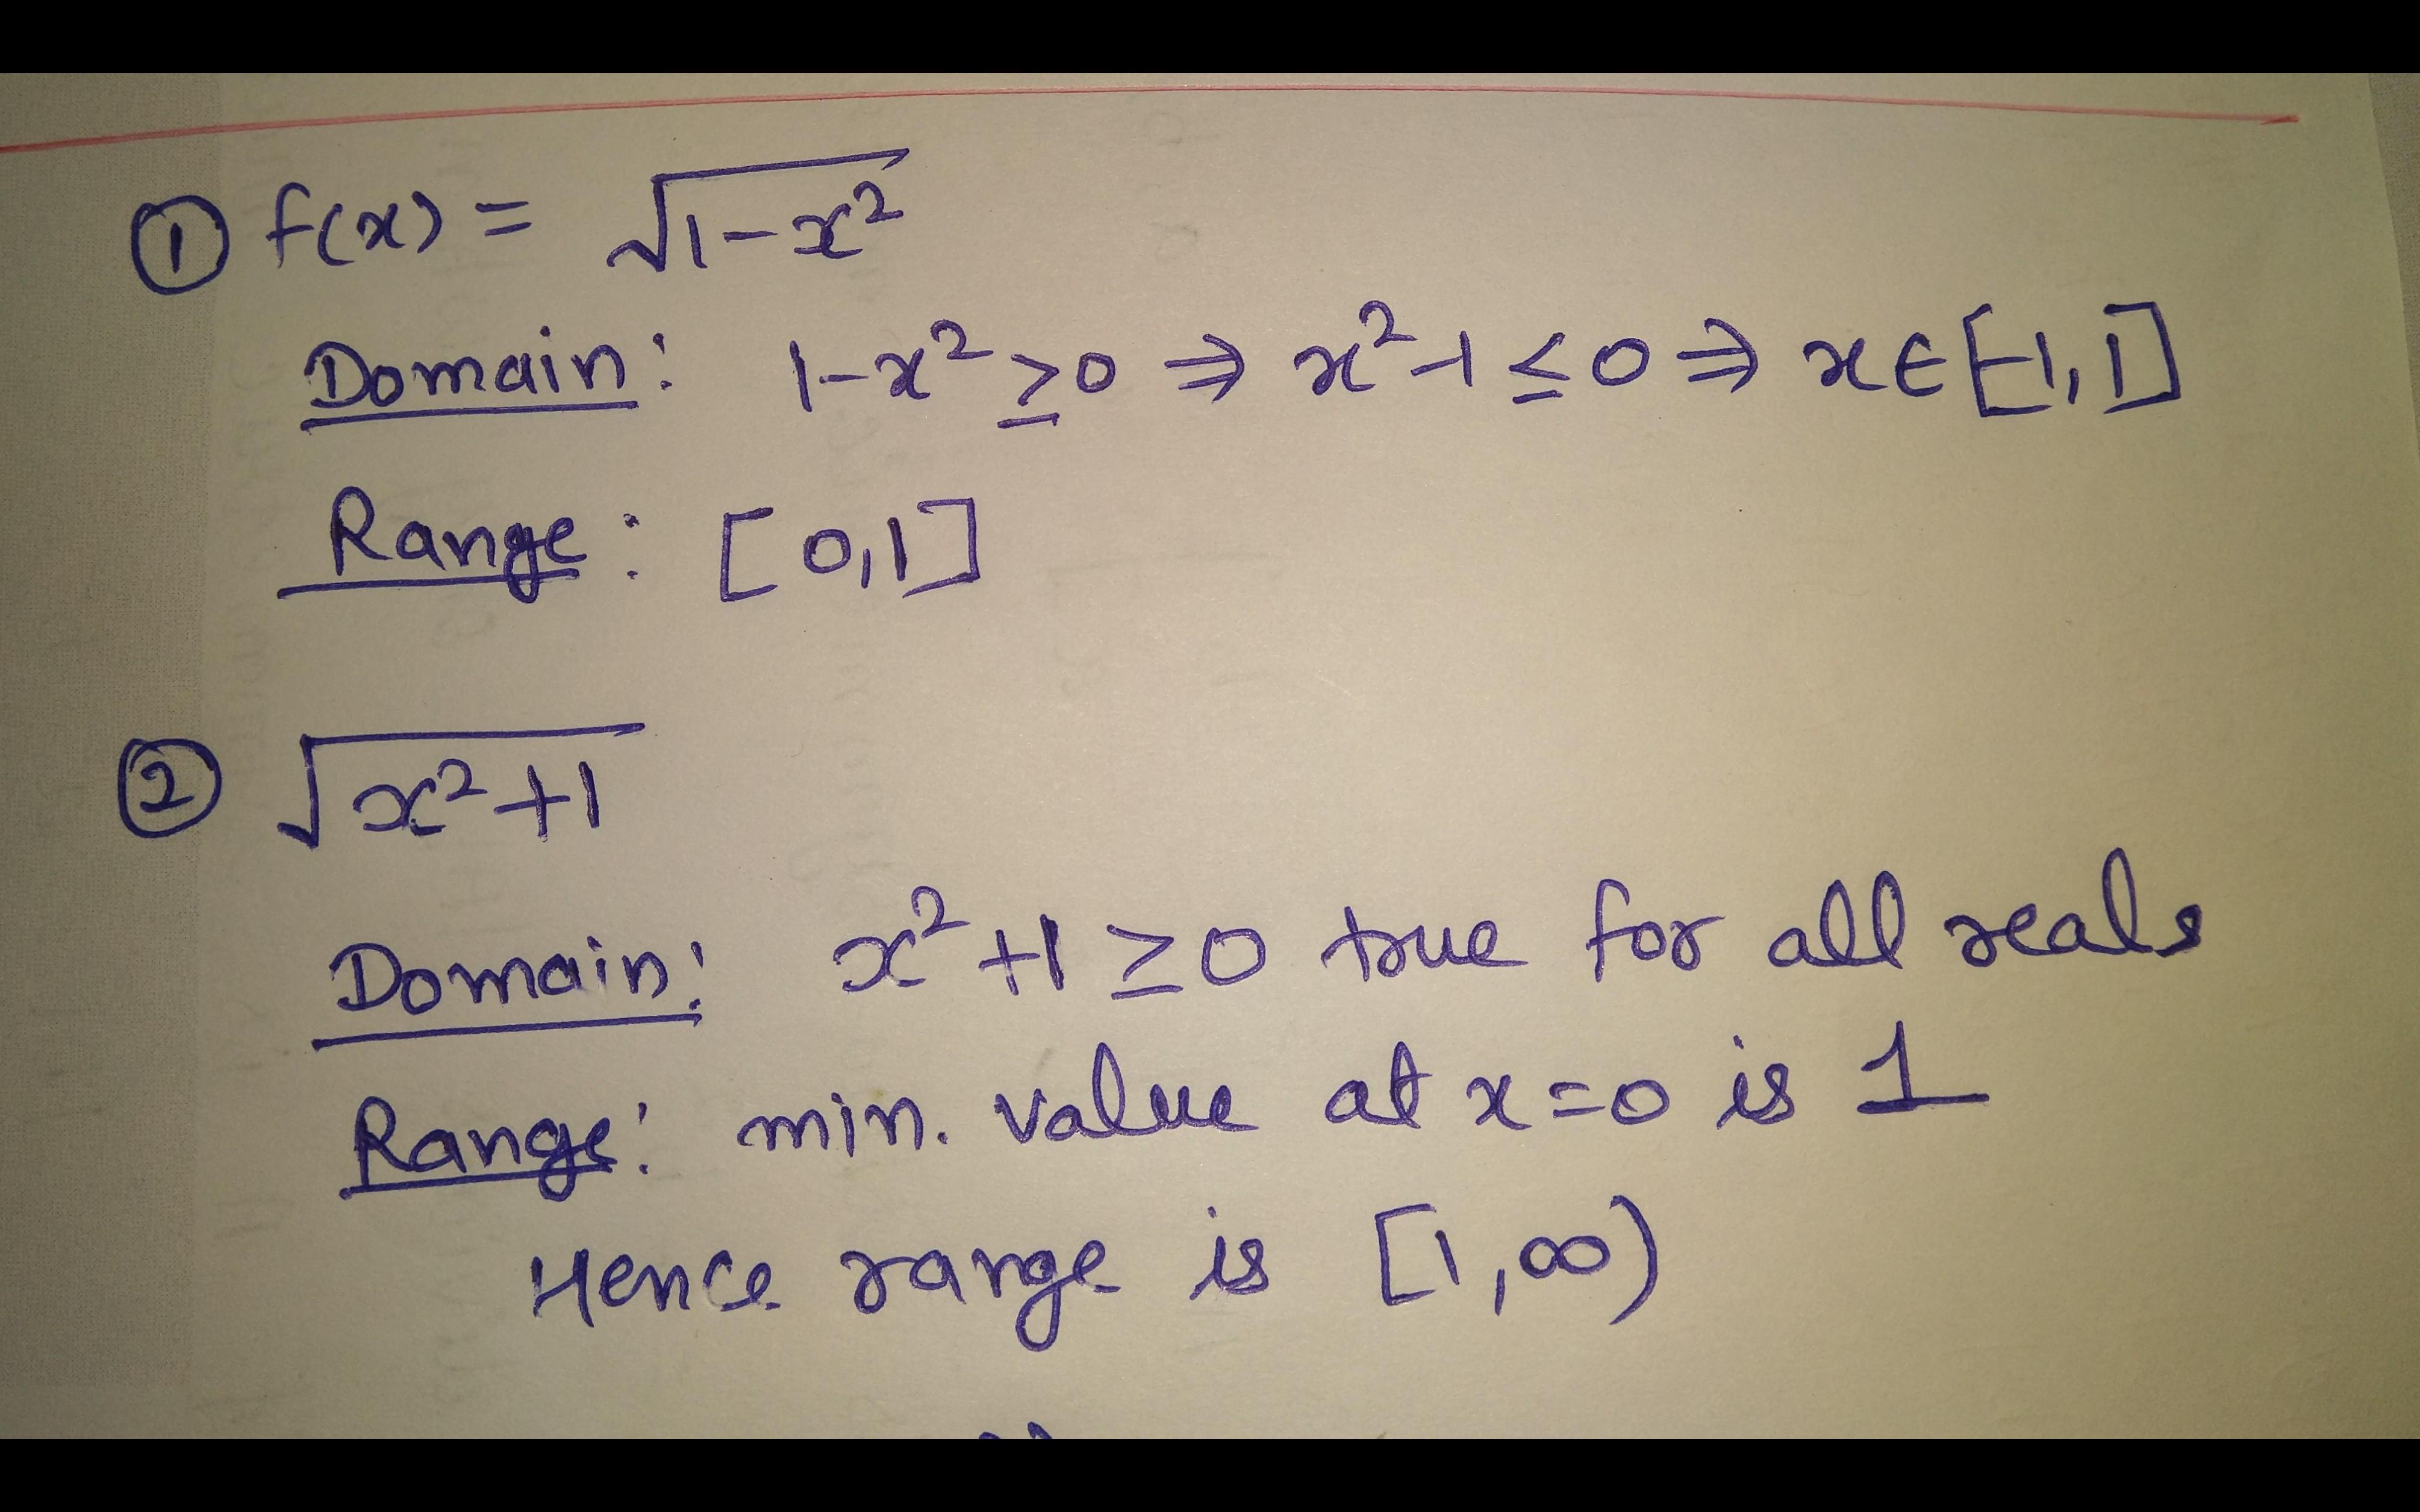 ① f(x) = √(1-x²)
Domain: 1-x² ≥ 0 ⇒ x²-1 ≤ 0 ⇒ x ∈ [-1,1]
Range: [0,1]
② √(x²+1)
Domain: x²+1 ≥ 0 true for all reals
Range: min. value at x=0 is 1
Hence range is [1,∞)